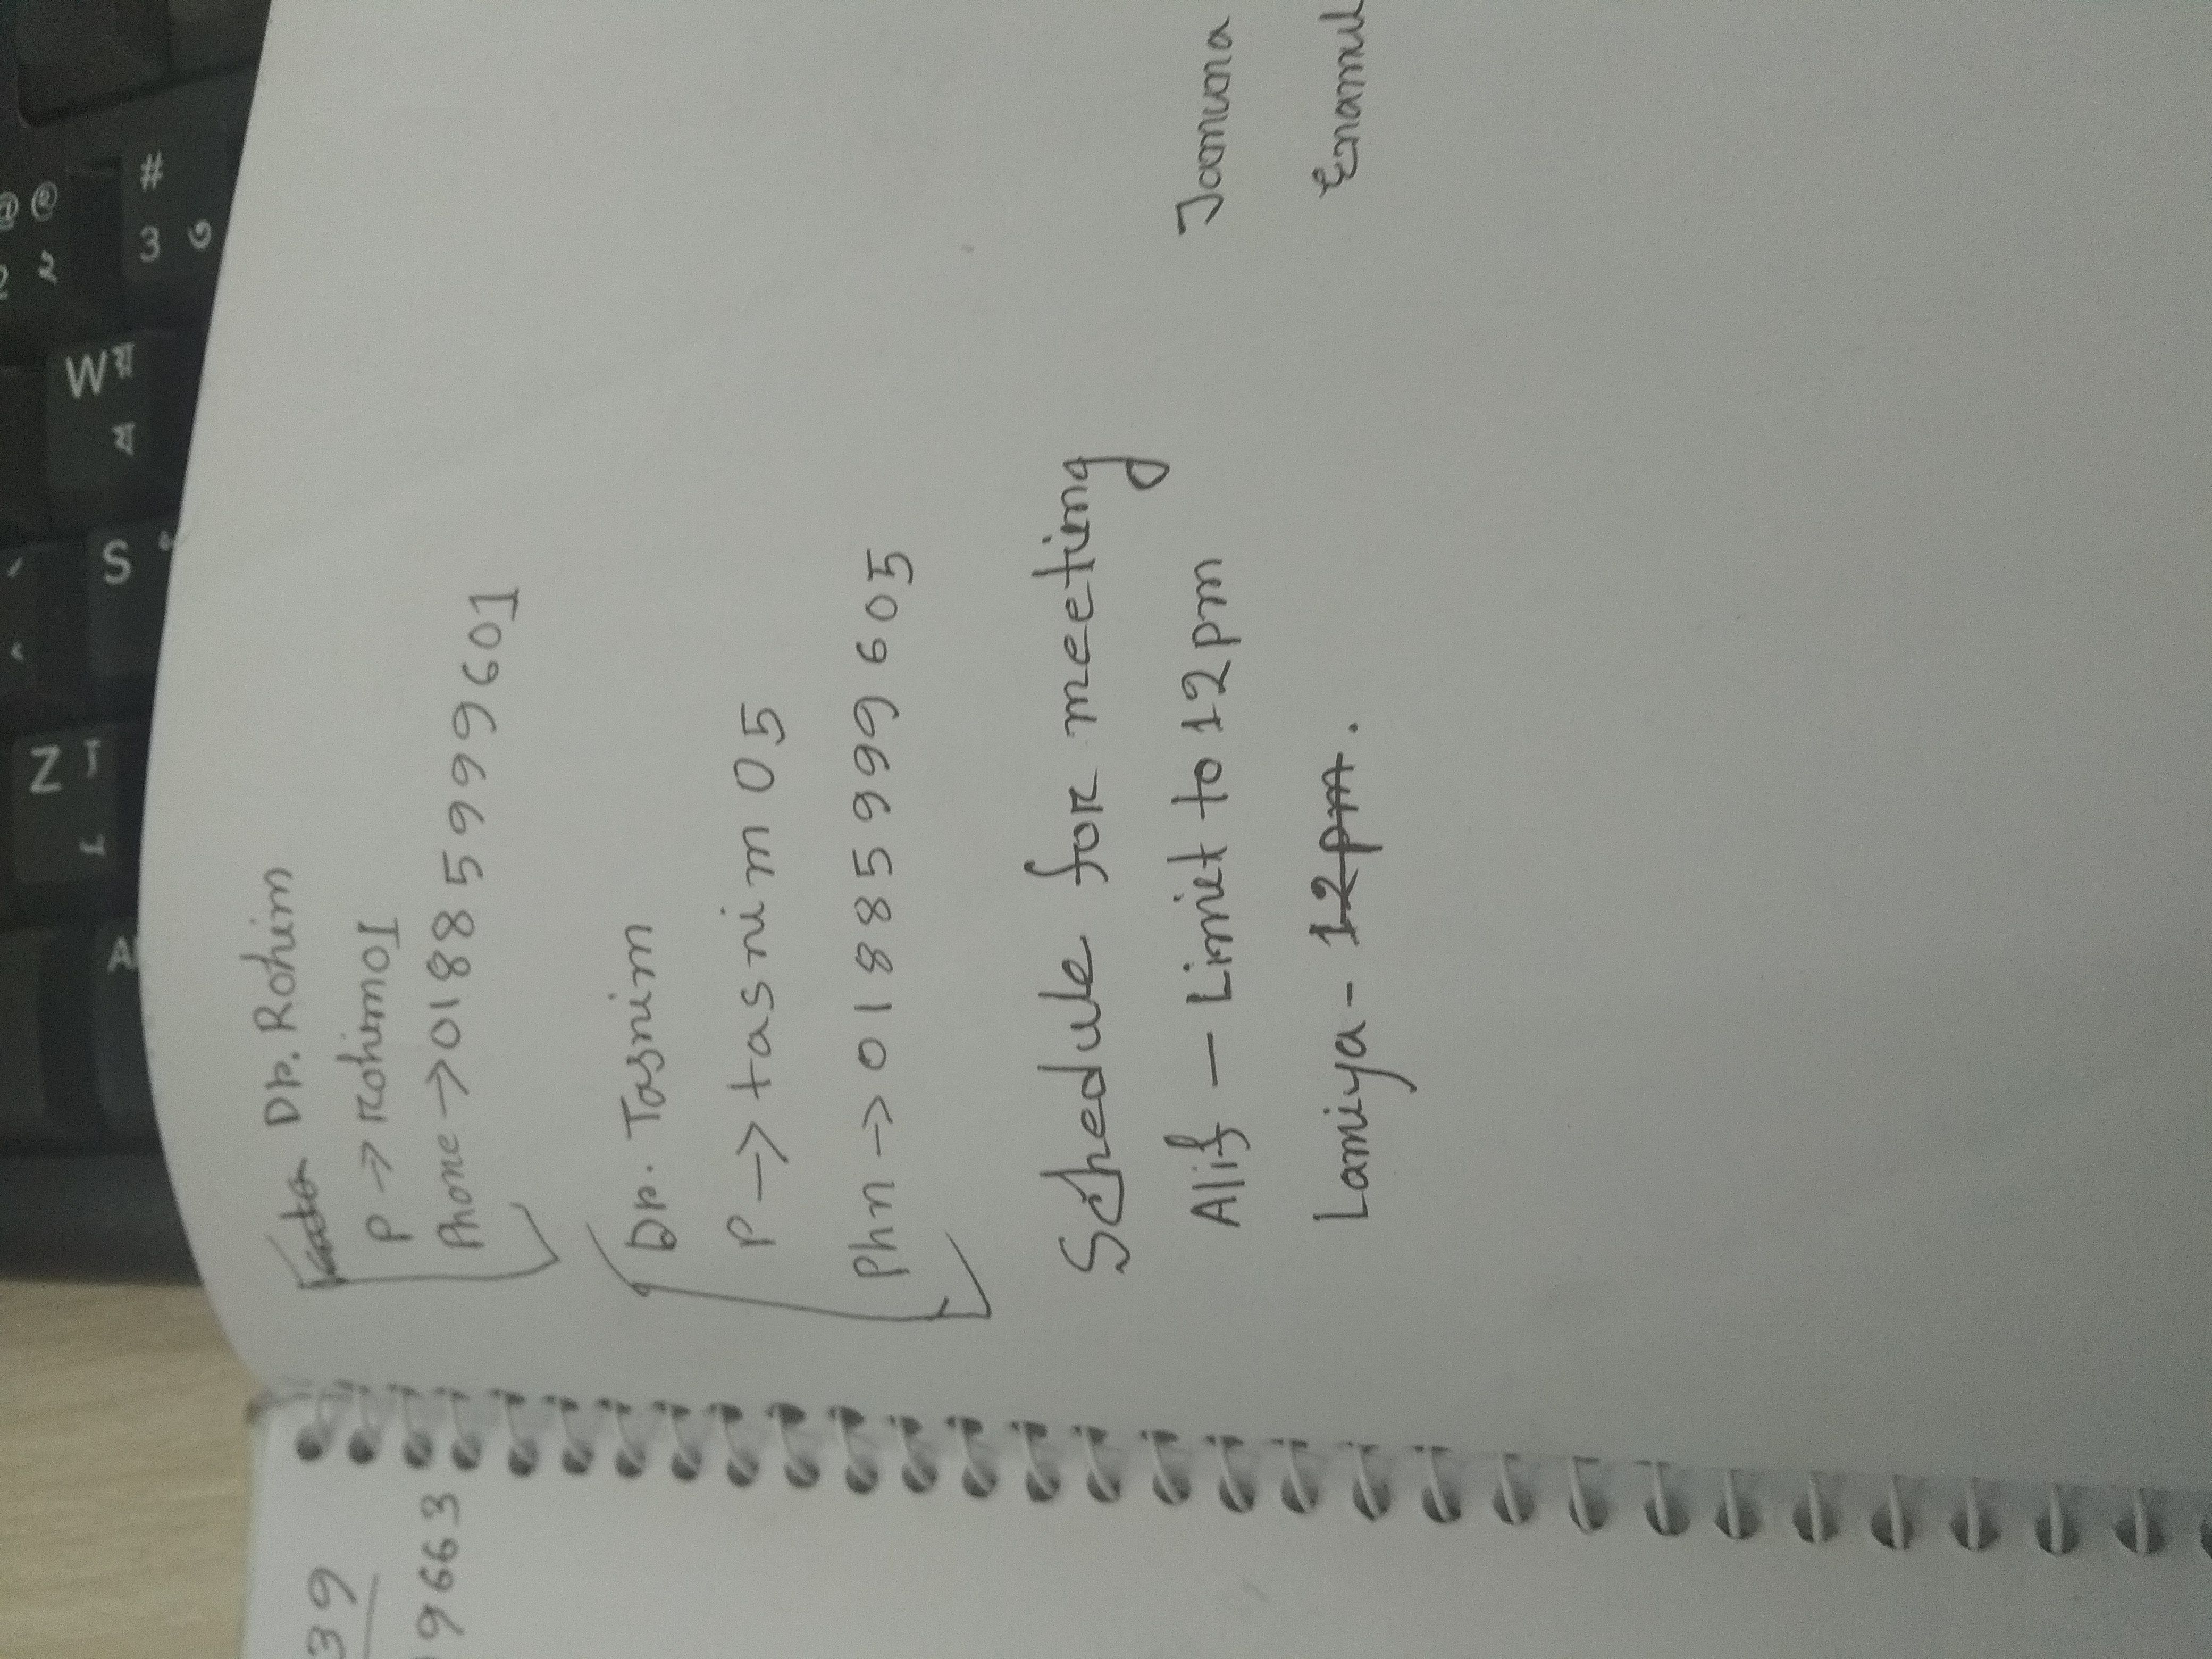 Dr. Rohim
P → Rohim01
Phone → 01885999601
Dr. Tasnim
P → tasnim 05
Phn → 01885999605
Schedule for meeting
Alif — Limit to 12 pm
Lamiya - 12pm.
Jamuna
Enamul
39
99663
@ @
2 ২
#
3 ৩
W য়
য
S
Z
A